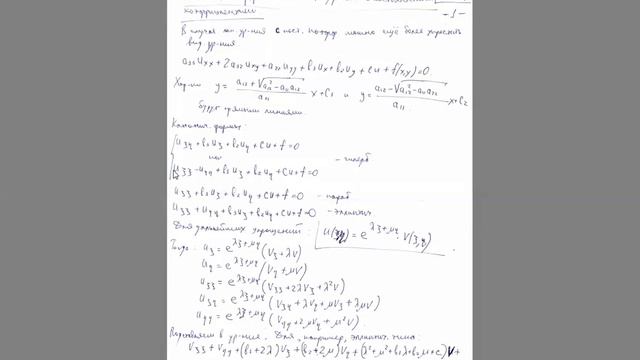 коэффициентами -1-
В случае лин. ур-ния с пост. коэфф можно ещё более упростить
вид ур-ния.
a₁₁Uxx + 2a₁₂Uxy + a₂₂Uyy + b₁Ux + b₂Uy + cu + f(x,y) = 0
Хар-ки y = (a₁₂ + √(a₁₂² - a₁₁a₂₂))/a₁₁ x + C₁ и y = (a₁₂ - √(a₁₂² - a₁₁a₂₂))/a₁₁ x + C₂
будут прямыми линиями.
Канонич. формы:
Uξη + b₁Uξ + b₂Uη + cu + f = 0
или - гиперб
Uξξ - Uηη + b₁Uξ + b₂Uη + cu + f = 0
Uξξ + b₁Uξ + b₂Uη + cu + f = 0 - параб
Uξξ + Uηη + b₁Uξ + b₂Uη + cu + f = 0 - эллиптич
Для дальнейших упрощений: U(ξ,η) = e^(λξ+μη) · V(ξ,η)
Тогда: Uξ = e^(λξ+μη) (Vξ + λV)
Uη = e^(λξ+μη) (Vη + μV)
Uξξ = e^(λξ+μη) (Vξξ + 2λVξ + λ²V)
Uξη = e^(λξ+μη) (Vξη + λVη + μVξ + λμV)
Uηη = e^(λξ+μη) (Vηη + 2μVη + μ²V)
Подставляем в ур-ние. Для, например, эллиптич. типа:
Vξξ + Vηη + (b₁+2λ)Vξ + (b₂+2μ)Vη + (λ²+μ²+b₁λ+b₂μ+c)V +